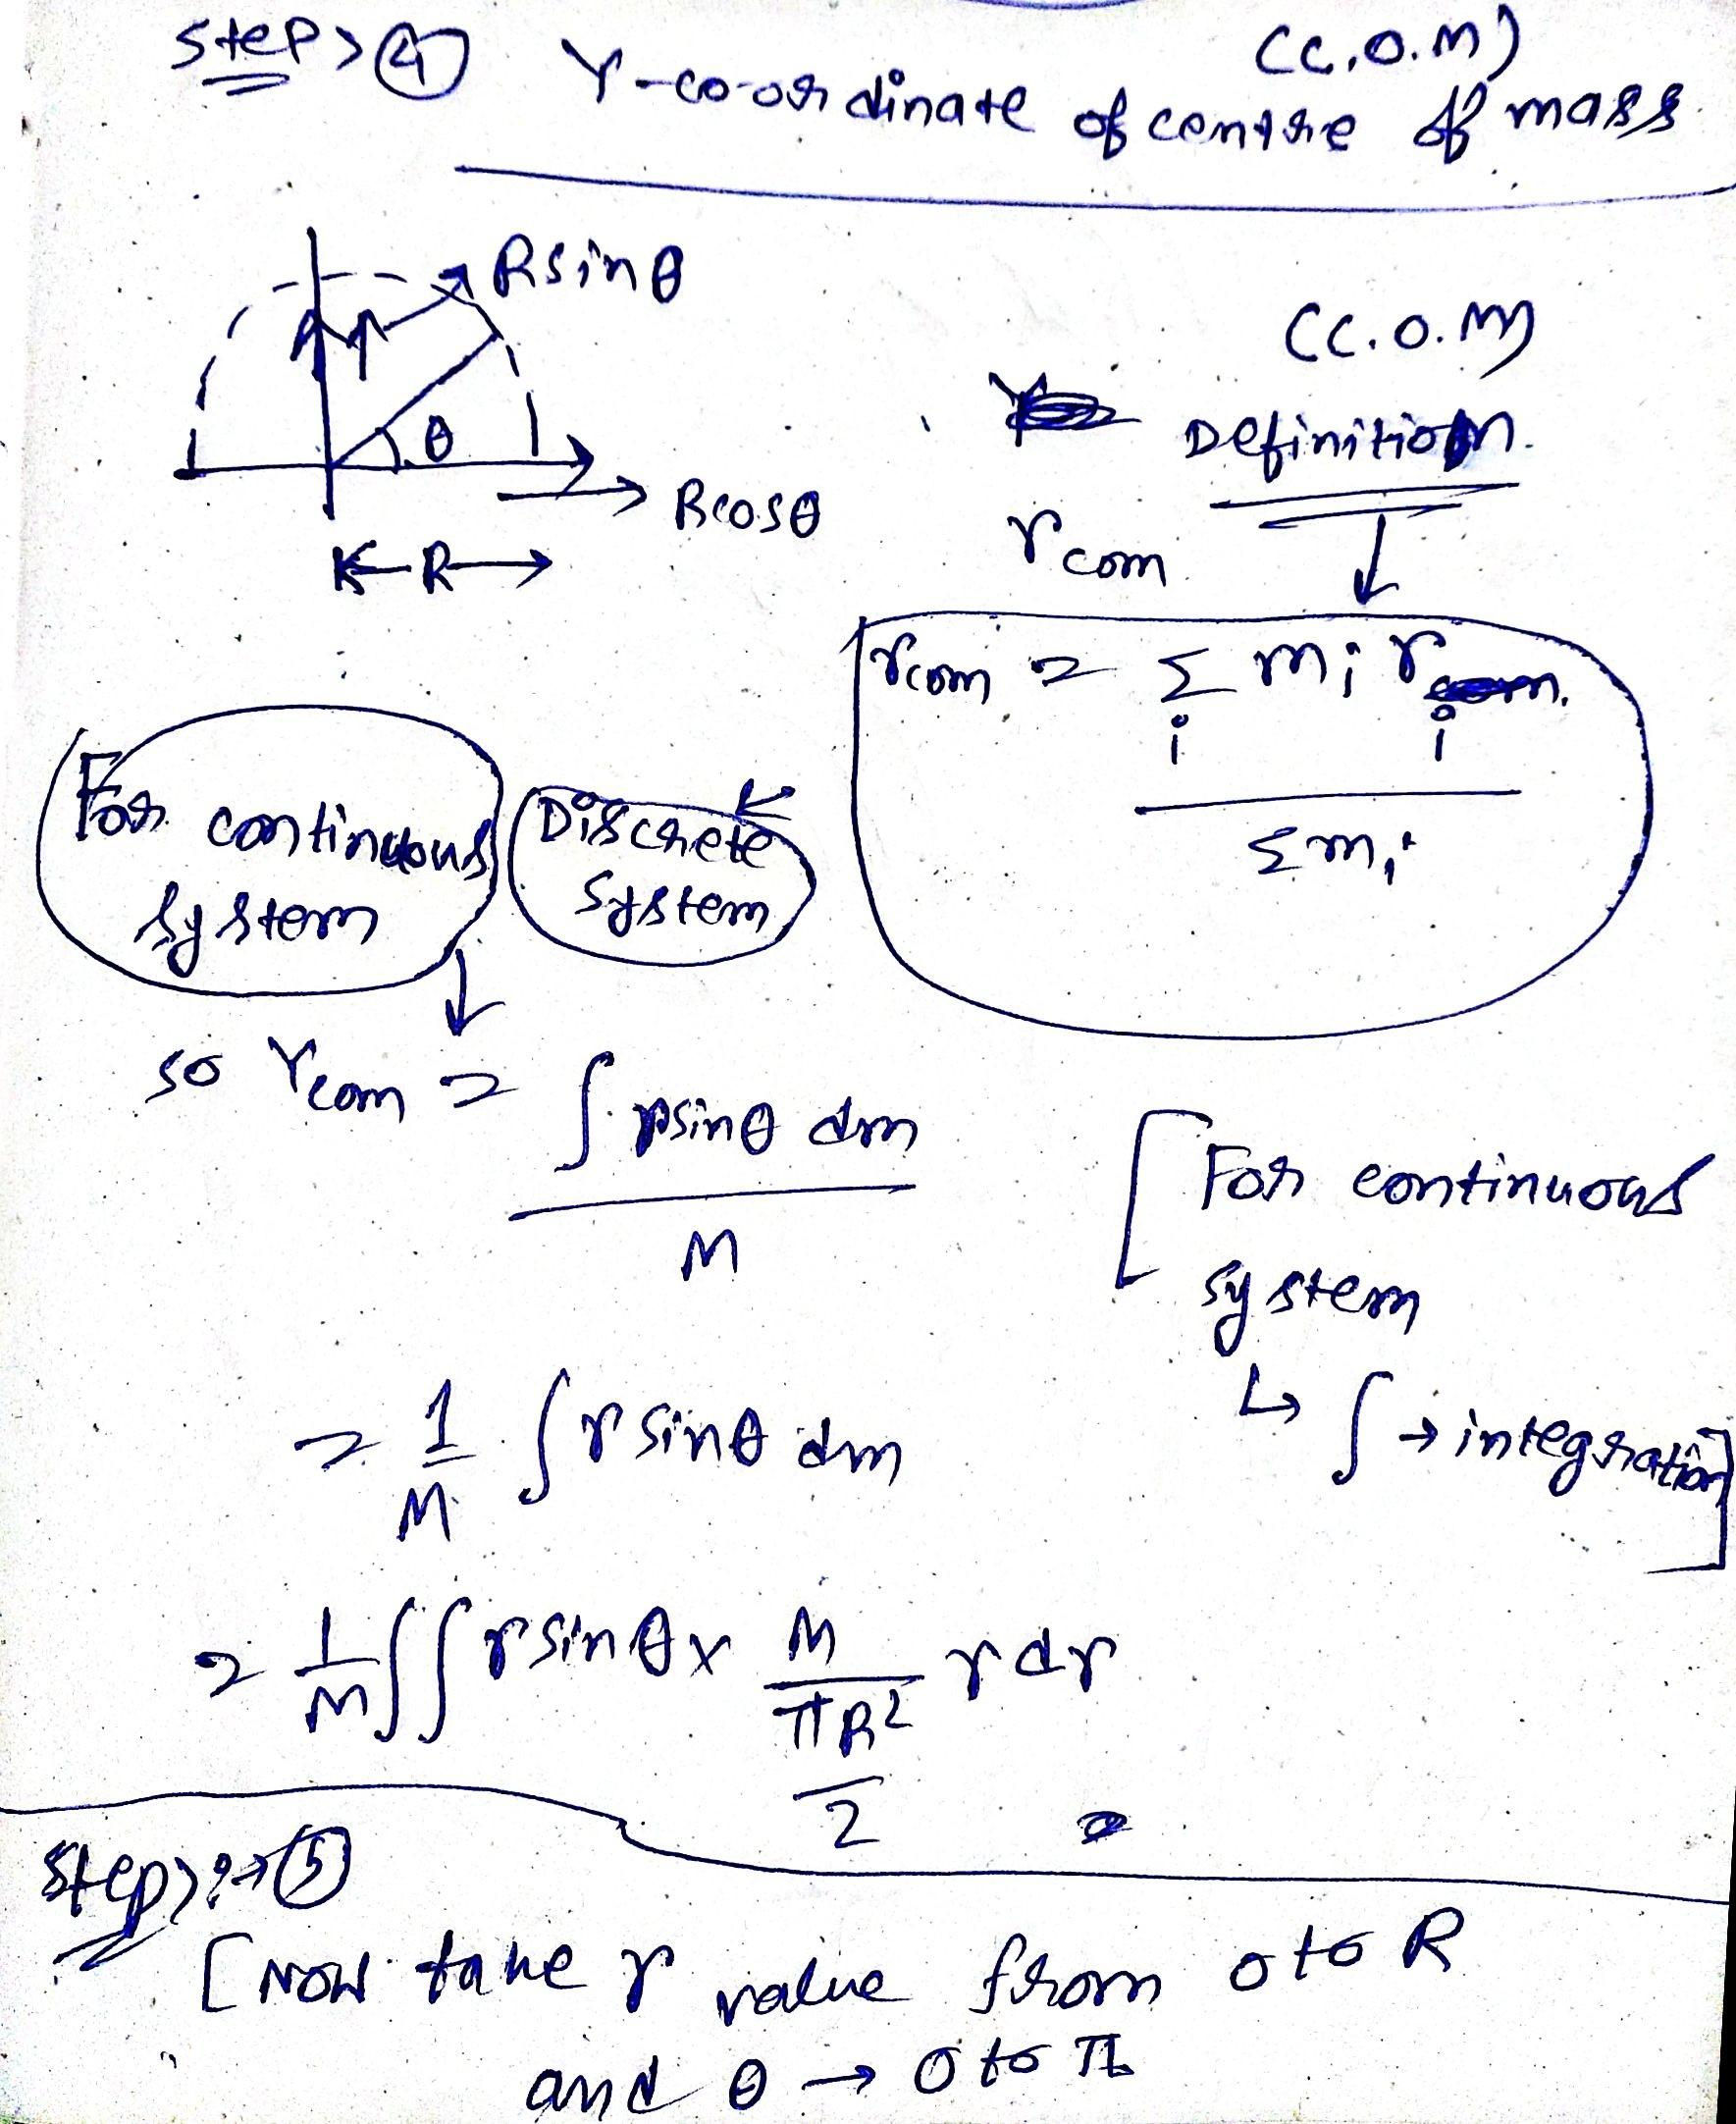 Step > ④ Y-co-ordinate of centre of mass (C.O.M)
Rsinθ
θ
Rcosθ
R
(C.O.M)
Definition.
rcom
rcom = Σ mᵢ rᵢ
i
Σmᵢ
For continuous
system
Discrete
system
so Ycom = ∫ rsinθ dm
M
[For continuous
system
↳ ∫ → integration]
= 1/M ∫ r sinθ dm
= 1/M ∫∫ r sinθ × M/(πR²/2) r dr
Step > :→ ⑤
[Now take r value from 0 to R
and θ → 0 to π